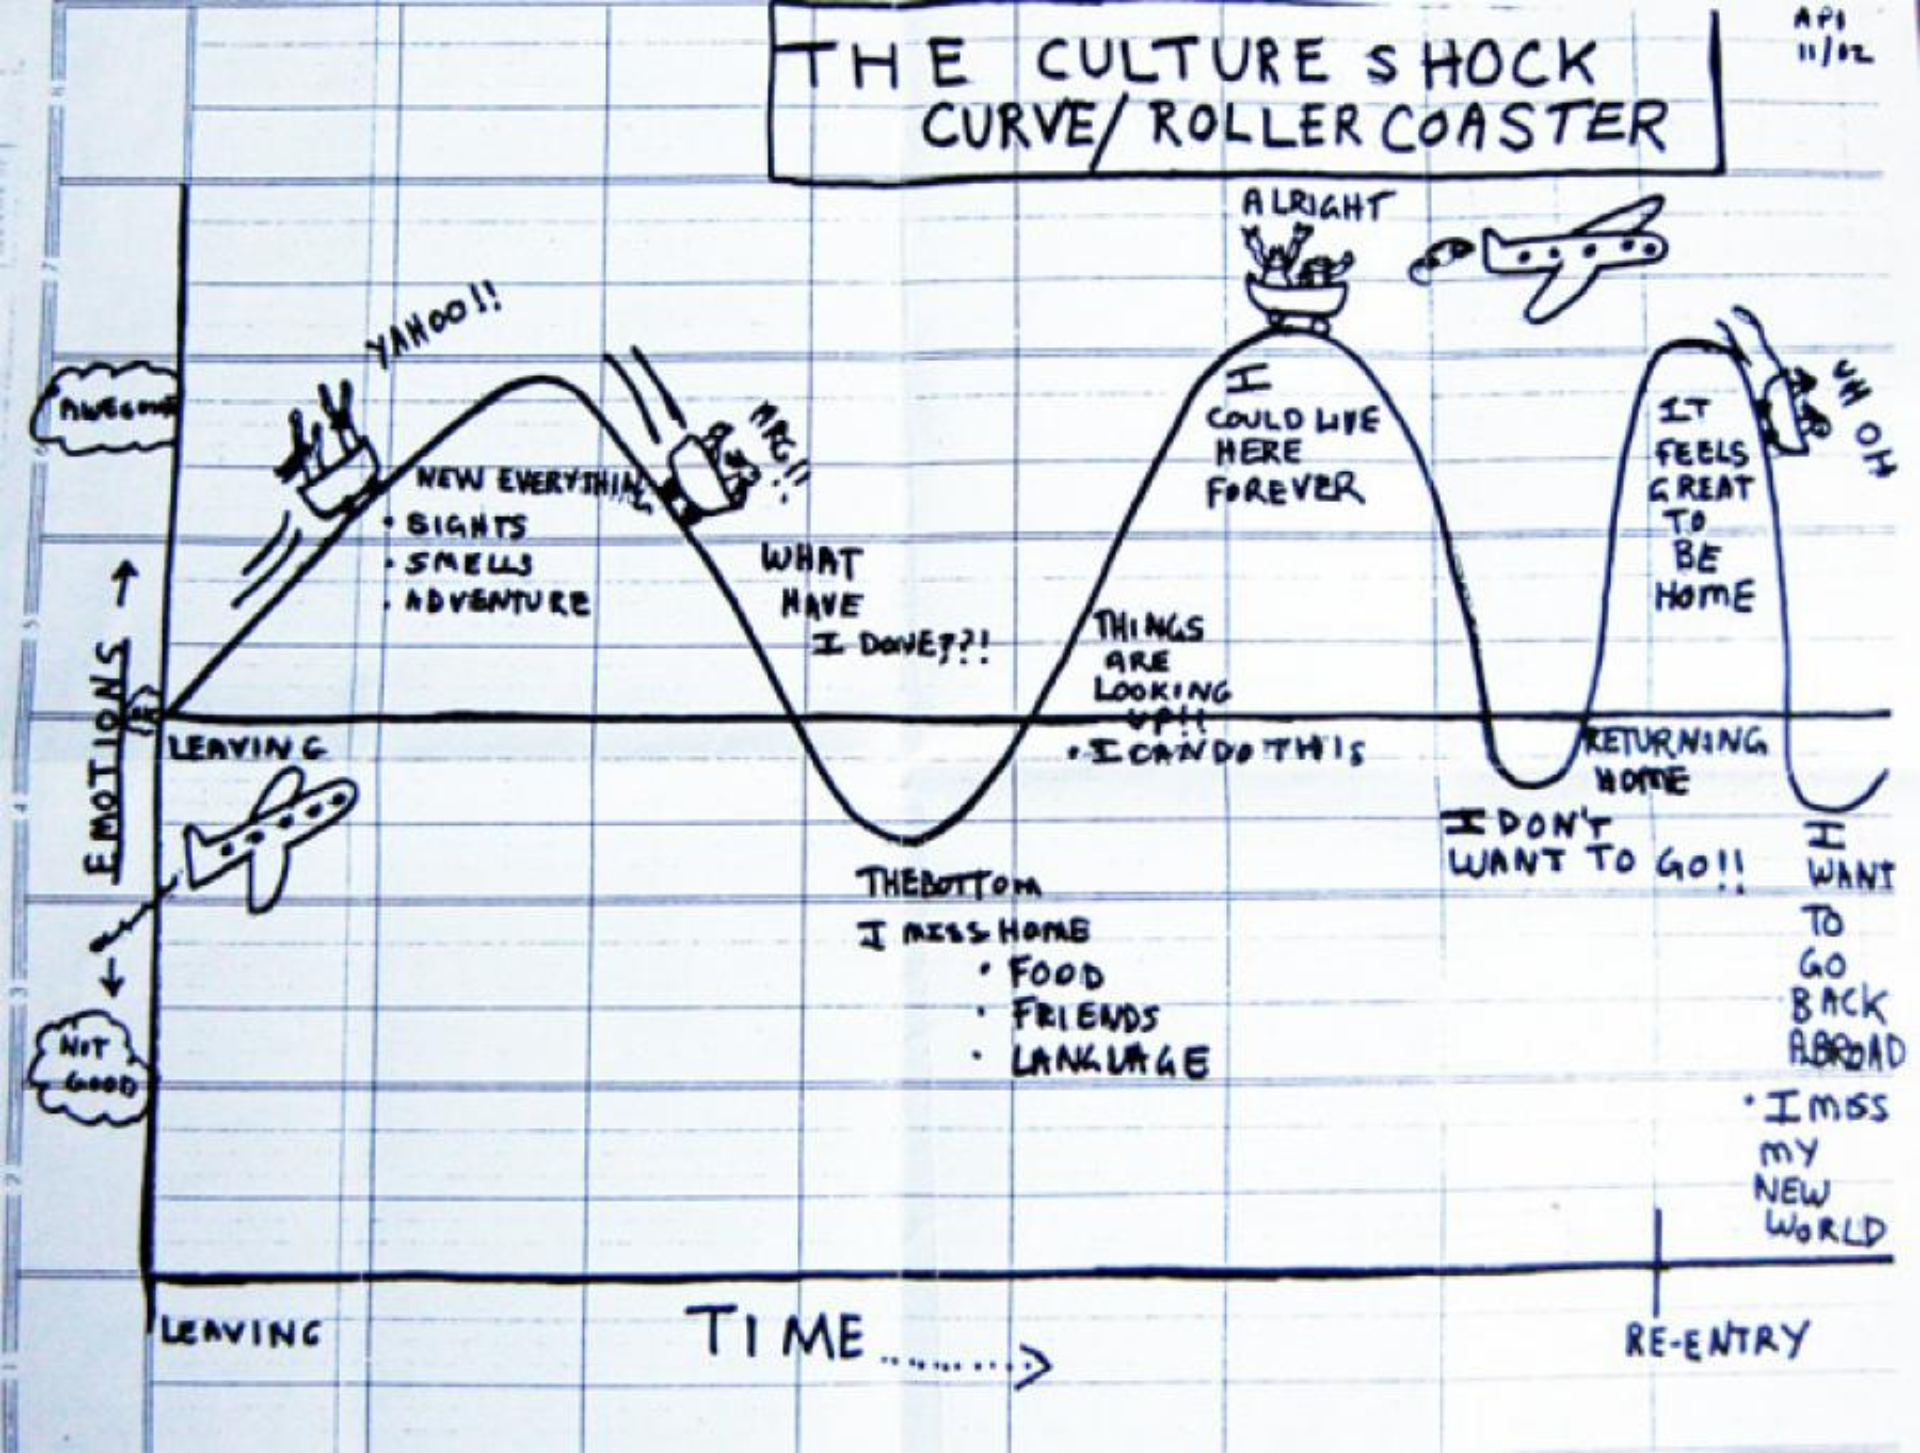 THE CULTURE SHOCK
CURVE/ROLLER COASTER
API
11/02
ALRIGHT
YAHOO!!
AWESOME
ARG!!
UH OH
I
COULD LIVE
HERE
FOREVER
IT
FEELS
GREAT
TO
BE
HOME
NEW EVERYTHING
• SIGHTS
• SMELLS
• ADVENTURE
WHAT
HAVE
I DONE??!
THINGS
ARE
LOOKING
UP!!
• I CAN DO THIS
EMOTIONS
OK
LEAVING
RETURNING
HOME
I DON'T
WANT TO GO!!
THE BOTTOM
I MISS HOME
• FOOD
• FRIENDS
• LANGUAGE
I
WANT
TO
GO
BACK
ABROAD
• I MISS
MY
NEW
WORLD
NOT
GOOD
LEAVING
TIME
RE-ENTRY